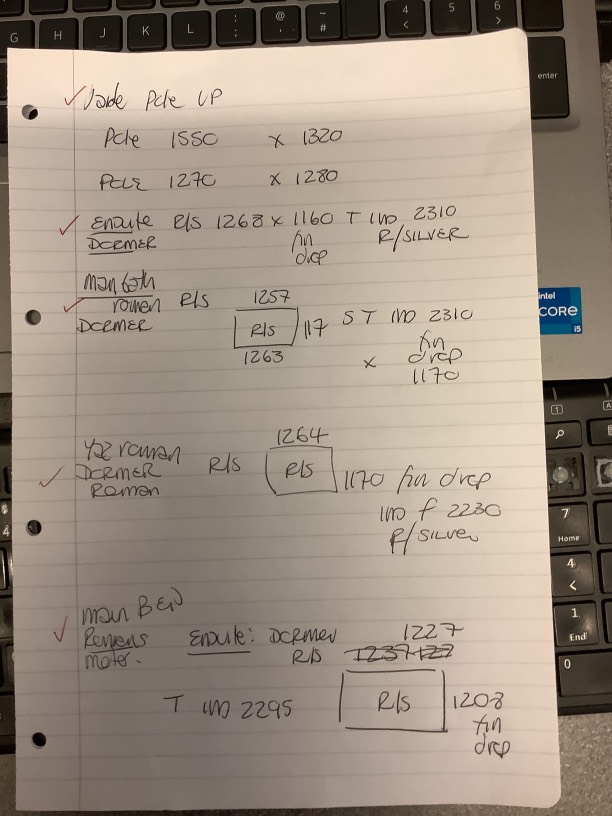 Pole UP
Pole 1550 x 1320
Pole 1270 x 1280
Ensuite R/S 1268 x 1160 T IND 2310
DORMER fin drop R/SILVER
roman R/S 1257
DORMER R/S 117 S T IND 2310
1263 x fin drop
1170
roman 1264
DORMER R/S R/S 1170 fin drop
Roman
IND f 2230
R/silver
main BED
Remens Ensuite: Dormer 1227
moter. R/S
T IND 2295 R/S 1208
fin
drop
G H J K L : ; @ ' ~ # 4 < 5 6 >
enter
intel
CORE
i5
7
Home
4
<
1
End
0